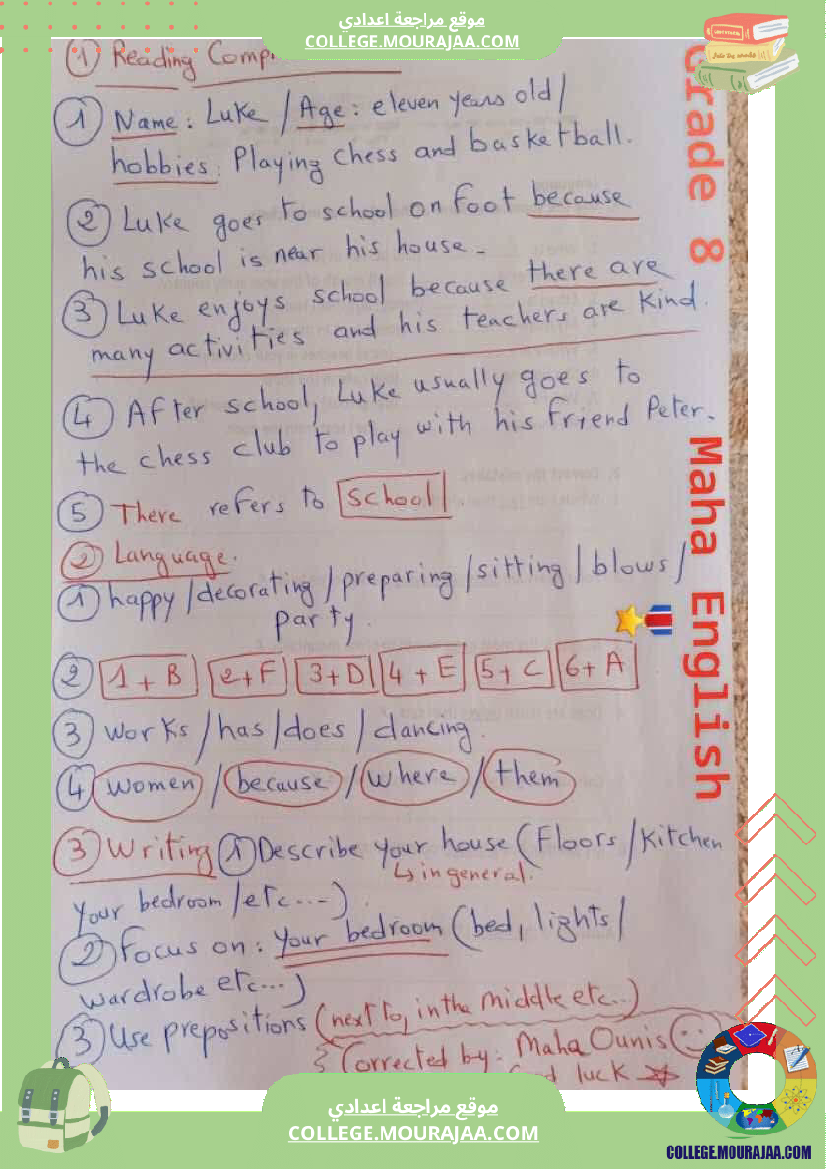 موقع مراجعة اعدادي
COLLEGE.MOURAJAA.COM
Grade 8
Maha English
① Reading
① Name: Luke / Age: eleven years old /
hobbies: Playing chess and basketball.
② Luke goes to school on foot because
his school is near his house.
③ Luke enjoys school because there are
many activities and his teachers are kind.
④ After school, Luke usually goes to
the chess club to play with his friend Peter.
⑤ There refers to school
② Language.
① happy / decorating / preparing / sitting / blows /
party.
② 1 + B 2+F 3+D 4 + E 5+ C 6+ A
③ works / has / does / dancing.
④ women / because / where / them
③ Writing ① Describe your house (Floors / Kitchen
↳ in general.
your bedroom / etc...-).
② Focus on: your bedroom (bed, lights /
wardrobe etc...)
③ Use prepositions (next to, in the middle etc..)
Corrected by: Maha Ounis
luck
موقع مراجعة اعدادي
COLLEGE.MOURAJAA.COM
COLLEGE.MOURAJAA.COM